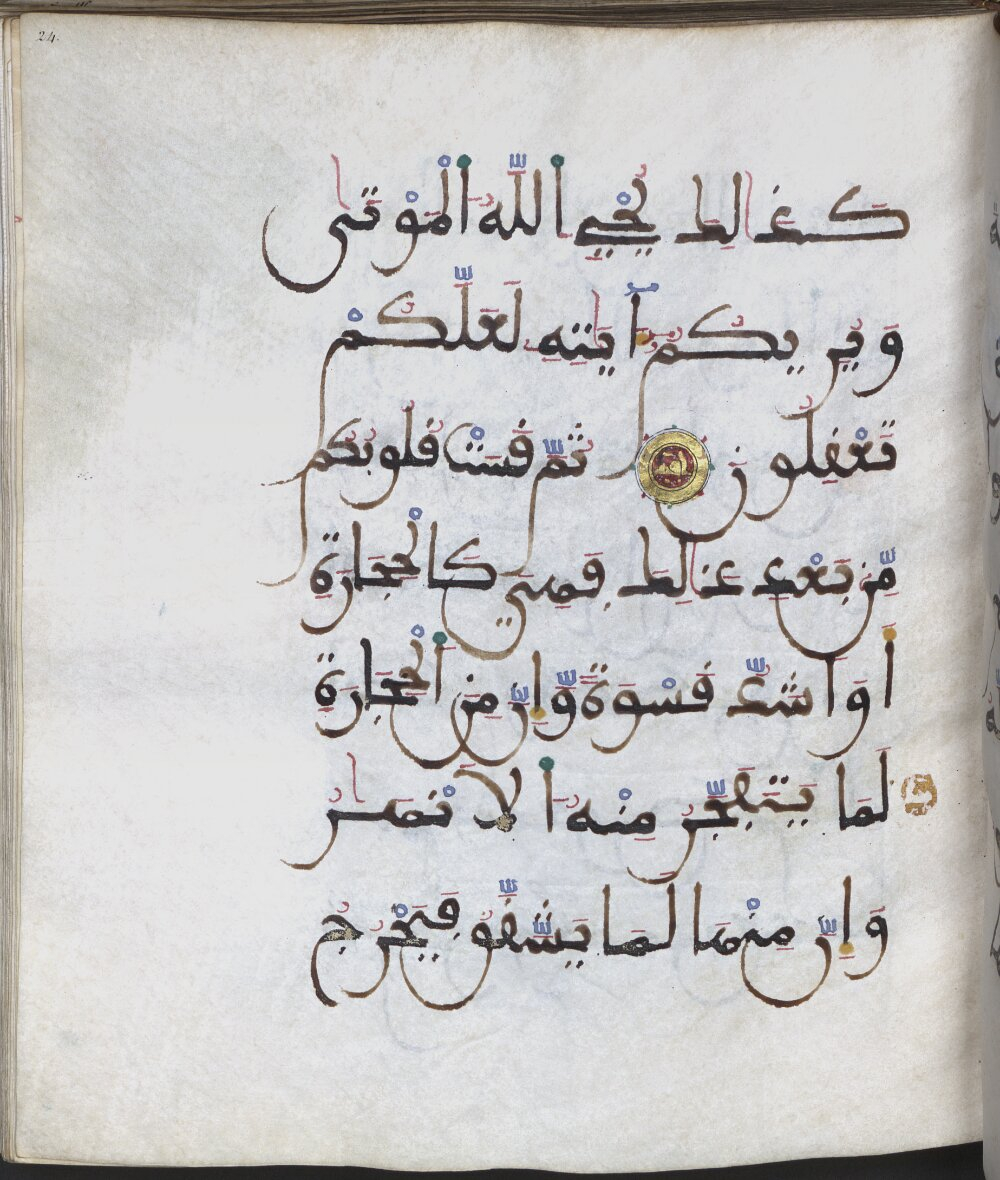 24.
كَذَٰلِكَ يُحْيِ اِ۬للَّهُ اُ۬لْمَوْتَىٰ
وَيُرِيكُمُۥٓ ءَايَٰتِهِۦ لَعَلَّكُمْ
تَعْقِلُونَ ثُمَّ قَسَتْ قُلُوبُكُم
مِّنۢ بَعْدِ ذَٰلِكَ فَهِيَ كَالْحِجَارَةِ
أَوَ اَشَدُّ قَسْوَةً وَّإِنَّ مِنَ اَ۬لْحِجَارَةِ
لَمَا يَتَفَجَّرُ مِنْهُ اُ۬لَانْهَٰرُ
وَإِنَّ مِنْهَا لَمَا يَشَّقَّقُ فَيَخْرُجُ